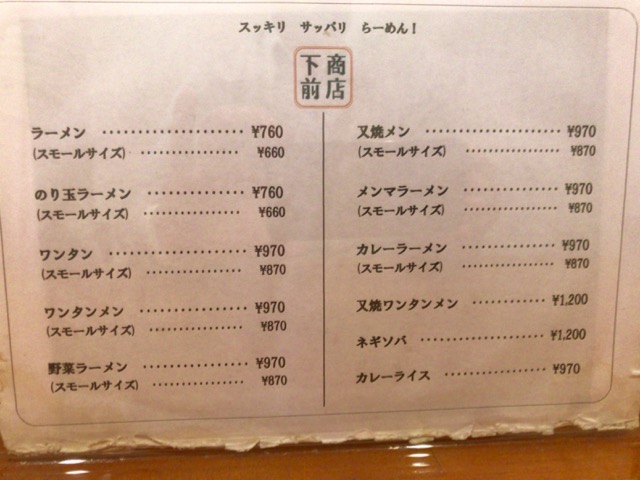 スッキリ サッパリ らーめん！
下前商店
ラーメン ‥‥‥‥‥‥‥‥ ¥760
(スモールサイズ) ‥‥‥‥‥‥ ¥660
のり玉ラーメン ‥‥‥‥‥‥ ¥760
(スモールサイズ) ‥‥‥‥‥‥ ¥660
ワンタン ‥‥‥‥‥‥‥‥ ¥970
(スモールサイズ) ‥‥‥‥‥‥ ¥870
ワンタンメン ‥‥‥‥‥‥ ¥970
(スモールサイズ) ‥‥‥‥‥‥ ¥870
野菜ラーメン ‥‥‥‥‥‥ ¥970
(スモールサイズ) ‥‥‥‥‥‥ ¥870
叉焼メン ‥‥‥‥‥‥‥‥ ¥970
(スモールサイズ) ‥‥‥‥‥‥ ¥870
メンマラーメン ‥‥‥‥‥‥ ¥970
(スモールサイズ) ‥‥‥‥‥‥ ¥870
カレーラーメン ‥‥‥‥‥‥ ¥970
(スモールサイズ) ‥‥‥‥‥‥ ¥870
叉焼ワンタンメン ‥‥‥‥‥ ¥1,200
ネギソバ ‥‥‥‥‥‥‥‥ ¥1,200
カレーライス ‥‥‥‥‥‥ ¥970